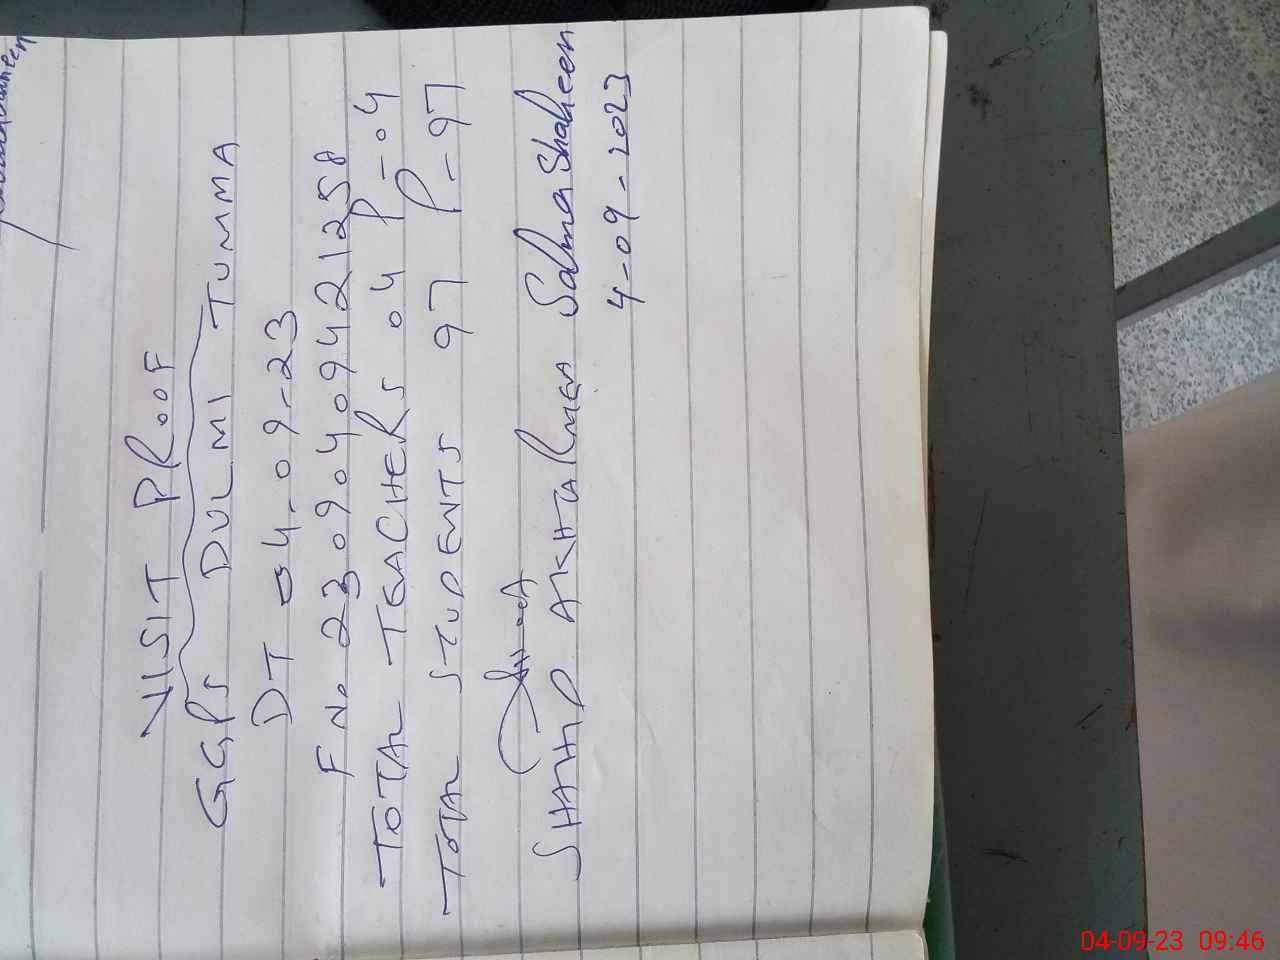 VISIT PROOF
GGPS DULMI TUMMA
DT 04-09-23
F No 23090409421258
TOTAL TEACHERS 04 P-04
TOTAL STUDENTS 97 P-97
SHAHID AKHTAR Salma Shaheen
4-09-2023
04-09-23 09:46